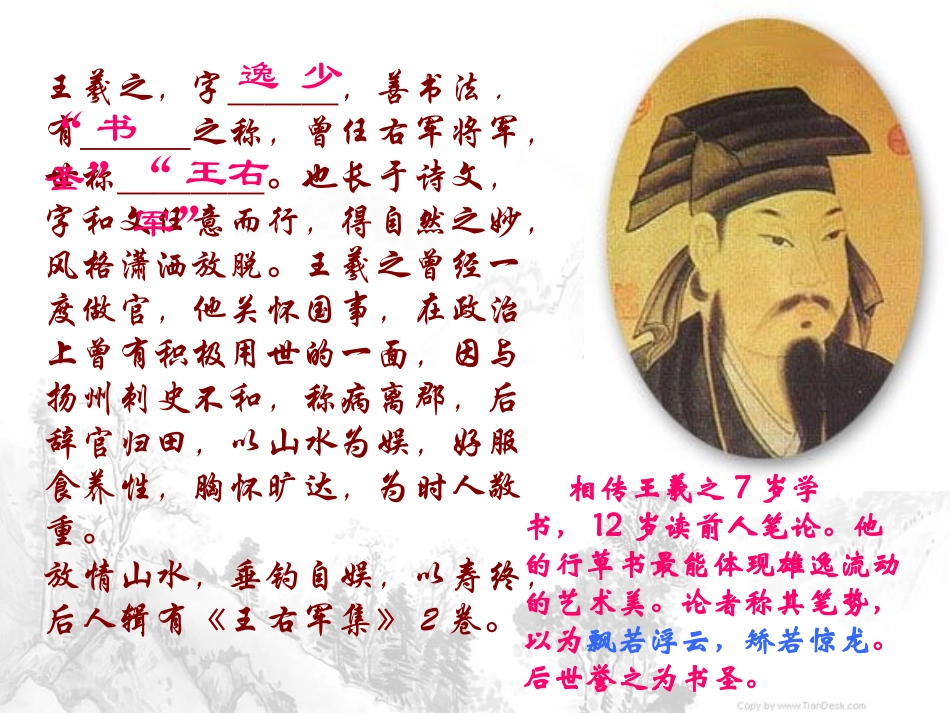 王羲之，字______，善书法，
逸 少
有______之称，曾任右军将军，
“书
圣”
世称________。也长于诗文，
“王右
军”
字和文任意而行，得自然之妙，
风格潇洒放脱。王羲之曾经一
度做官，他关怀国事，在政治
上曾有积极用世的一面，因与
扬州刺史不和，称病离郡，后
辞官归田，以山水为娱，好服
食养性，胸怀旷达，为时人敬
重。
放情山水，垂钓自娱，以寿终，
后人辑有《王右军集》2卷。
相传王羲之7岁学
书，12岁读前人笔论。他
的行草书最能体现雄逸流动
的艺术美。论者称其笔势，
以为飘若浮云，矫若惊龙。
后世誉之为书圣。
Copy by www.TianDesk.com